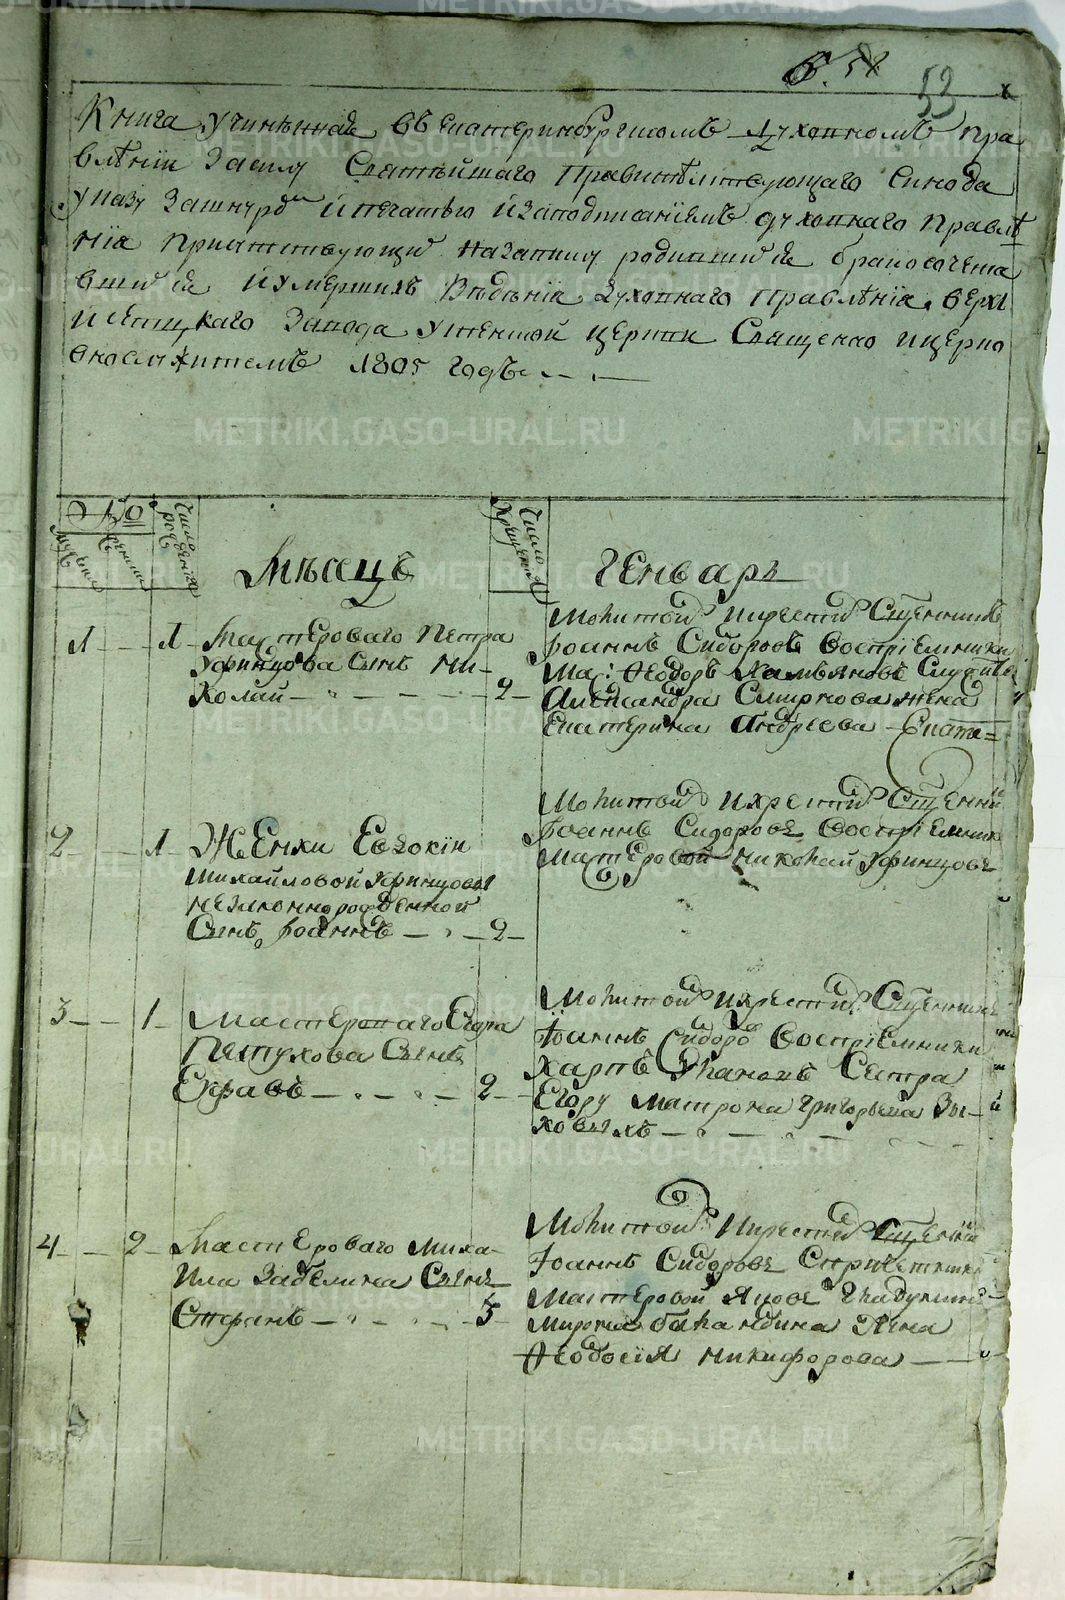 53
Книга учиненная въ Екатеринбургскомъ Духовномъ пра
влѣнiи Засилу Святѣйшаго Правителствующаго Синода
Указу Зашнуро й печатью изаподписанiемъ духовнаго Правлѣ
нiя Присутствующи назаписку родившися бракосочета
вшися иумершихъ Вѣденiя Духовнаго Правлѣнiя верхъ
Исетцкаго Завода Утекшой церкви Священно ицерко
внослжителемъ 1805 годъ
No
Число рожденiя
Число крещенiя
Мѣсяцъ
Генварь
1 1 Мастероваго Петра
Уфинцова Сынъ Ни-
колай 2
Молитвой икрестил Сщенникъ
Iоаннъ Сидоровъ Воспрiемники
Мас: Ѳеодоръ
Александра Смирнова жена
Екатерина Андреева
2 1 Женки Евдокiи
Михайловой Уфинцовой
незаконнорожденной
Сынъ Iоаннъ 2
Молитвой икрестил Сщенни
Iоаннъ Сидоровъ Воспрiемник
Мастеровой Николай Уфинцовъ
3 1 Мастероваго Егора
Петухова Сынъ
Евфавъ 2
Молитвой икрестил Сщенникъ
Iоаннъ Сидоро Воспрiемники
Сестра
Егору Матрона Григорьева Зы-
ковыхъ
4 2 Мастероваго Миха-
ила Забелина Сынъ
Стефанъ 5
Молитвой икрестил Сщенни
Iоаннъ Сидоровъ
Мастеровой Яковъ
Мирона Баландина Жена
Ѳеодосiя Никифорова
METRIKI.GASO-URAL.RU